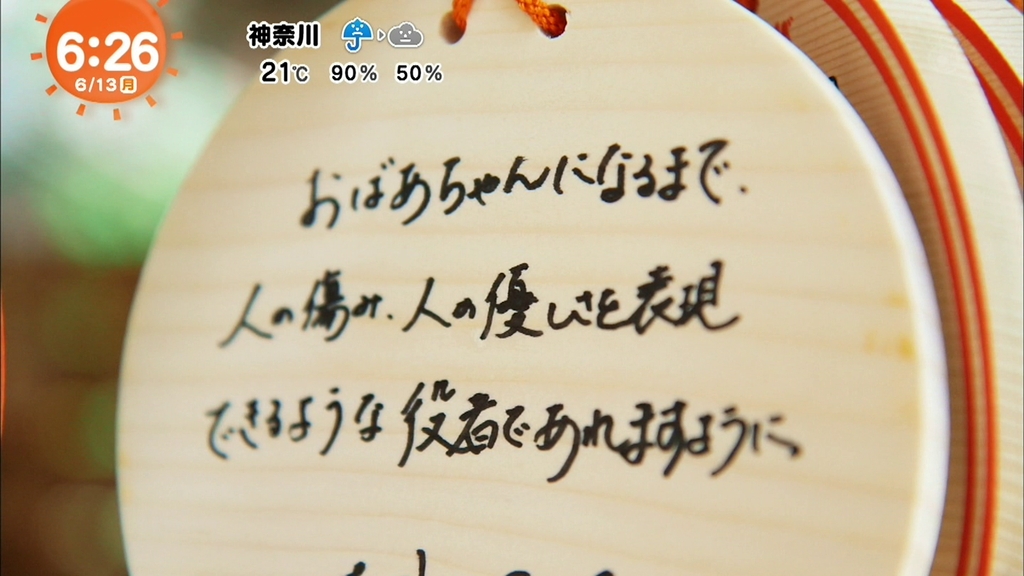 6:26
6/13月
神奈川
21℃ 90% 50%
おばあちゃんになるまで、
人の傷み、人の優しさを表現
できるような役者であれますように、